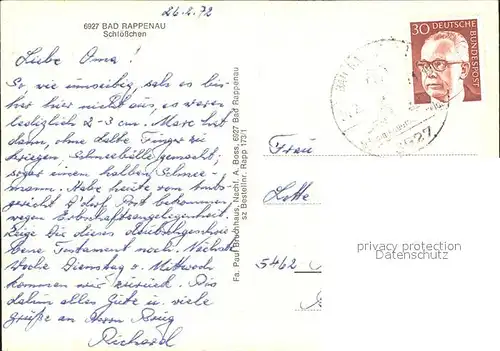 26.2.72
6927 BAD RAPPENAU
Schlößchen
Liebe Oma!
So wie umseitig, sah es bis
her hier nicht aus, es waren
lediglich 2-3 cm. Marc hat
dann, ohne kalte Finger zu
kriegen Schneebälle gemacht,
sogar einen halben Schnee-
mann. Habe heute vom Amts-
gericht D'dorf Post bekommen
wegen Erbschaftsangelegenheit.
Zeige Dir dieses
Testament noch. Nächste
Woche Dienstag o. Mittwoch
kommen wir zurück. Bis
dahin alles Gute u. viele
Grüße an Herrn
Richard
Fa. Paul Bruchhaus, Nachf. A. Boss, 6927 Bad Rappenau
sz Bestellnr. Rapp 173/1
30 DEUTSCHE
BUNDESPOST
6927
Frau
Lotte
privacy protection
Datenschutz
5462